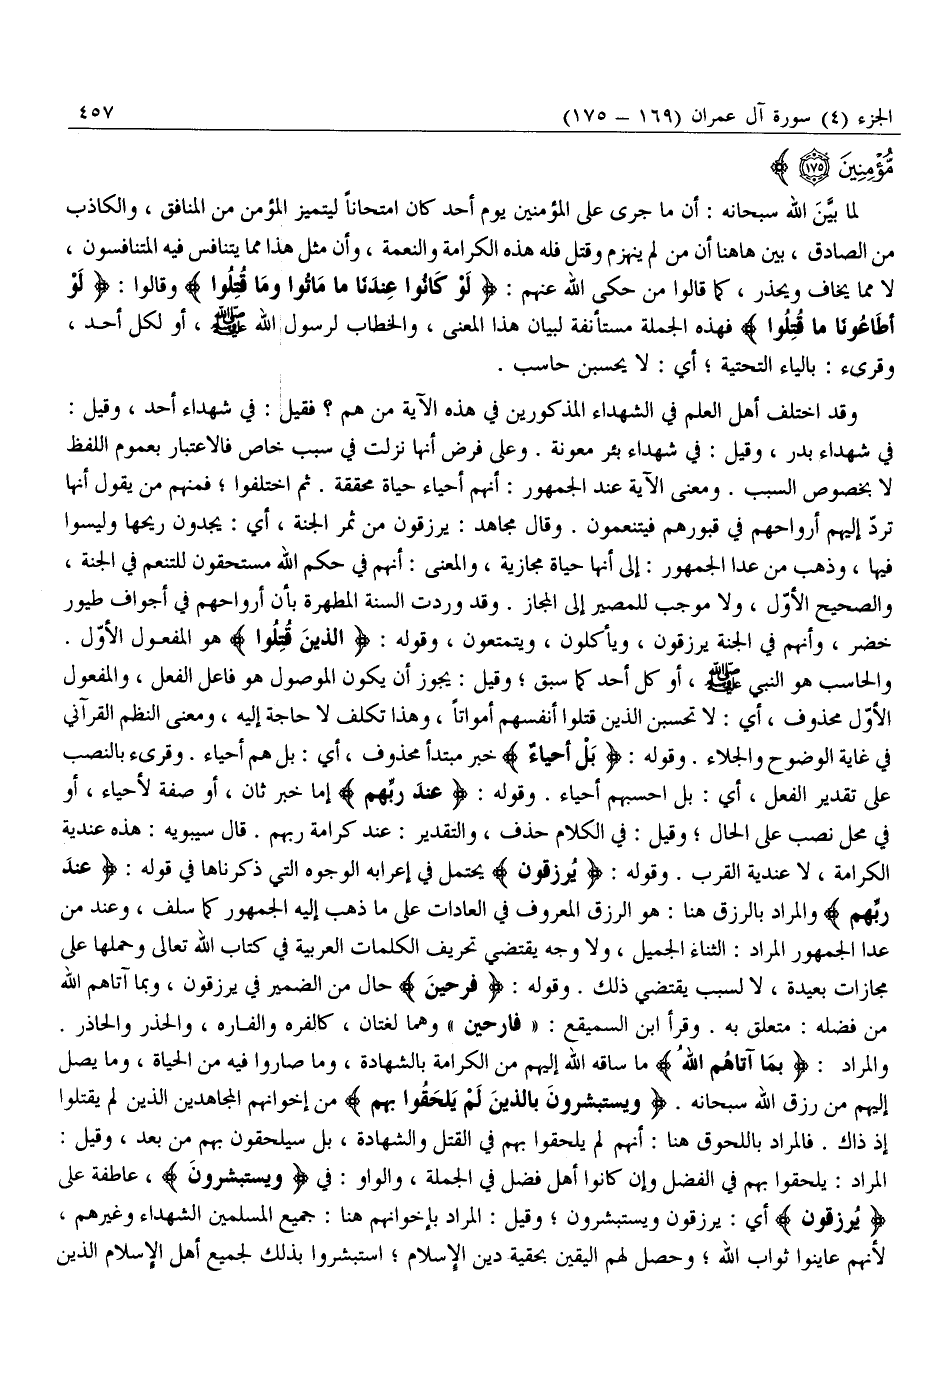 الجزء (٤) سورة آل عمران (١٦٩ – ١٧٥) ٤٥٧
مُّؤْمِنِينَ ١٧٥ ﴾
لما بيَّنَ الله سبحانه : أن ما جرى على المؤمنين يوم أحد كان امتحاناً ليتميز المؤمن من المنافق ، والكاذب
من الصادق ، بين هاهنا أن من لم ينهزم وقتل فله هذه الكرامة والنعمة ، وأن مثل هذا مما يتنافس فيه المتنافسون ،
لا مما يخاف ويحذر ، كما قالوا من حكى الله عنهم : ﴿ لَوْ كَانُوا عِندَنَا ما مَاتُوا ومَا قُتِلُوا ﴾ وقالوا : ﴿ لَوْ
أطَاعُونَا ما قُتِلُوا ﴾ فهذه الجملة مستأنفة لبيان هذا المعنى ، والخطاب لرسول الله ﷺ ، أو لكل أحد ،
وقرىء : بالياء التحتية ؛ أي : لا يحسبن حاسب .
وقد اختلف أهل العلم في الشهداء المذكورين في هذه الآية من هم ؟ فقيل : في شهداء أحد ، وقيل :
في شهداء بدر ، وقيل : في شهداء بئر معونة . وعلى فرض أنها نزلت في سبب خاص فالاعتبار بعموم اللفظ
لا بخصوص السبب . ومعنى الآية عند الجمهور : أنهم أحياء حياة محققة . ثم اختلفوا ؛ فمنهم من يقول أنها
تردّ إليهم أرواحهم في قبورهم فيتنعمون . وقال مجاهد : يرزقون من ثمر الجنة ، أي : يجدون ريحها وليسوا
فيها ، وذهب من عدا الجمهور : إلى أنها حياة مجازية ، والمعنى : أنهم في حكم الله مستحقون للتنعم في الجنة ،
والصحيح الأوّل ، ولا موجب للمصير إلى المجاز . وقد وردت السنة المطهرة بأن أرواحهم في أجواف طيور
خضر ، وأنهم في الجنة يرزقون ، ويأكلون ، ويتمتعون ، وقوله : ﴿ الذينَ قُتِلُوا ﴾ هو المفعول الأوّل .
والحاسب هو النبي ﷺ ، أو كل أحد كما سبق ؛ وقيل : يجوز أن يكون الموصول هو فاعل الفعل ، والمفعول
الأوّل محذوف ، أي : لا تحسبن الذين قتلوا أنفسهم أمواتاً ، وهذا تكلف لا حاجة إليه ، ومعنى النظم القرآني
في غاية الوضوح والجلاء . وقوله : ﴿ بَلْ أحياءٌ ﴾ خبر مبتدأ محذوف ، أي : بل هم أحياء . وقرىء بالنصب
على تقدير الفعل ، أي : بل احسبهم أحياء . وقوله : ﴿ عندَ ربِّهم ﴾ إما خبر ثان ، أو صفة لأحياء ، أو
في محل نصب على الحال ؛ وقيل : في الكلام حذف ، والتقدير : عند كرامة ربهم . قال سيبويه : هذه عندية
الكرامة ، لا عندية القرب . وقوله : ﴿ يُرزقون ﴾ يحتمل في إعرابه الوجوه التي ذكرناها في قوله : ﴿ عندَ
ربِّهم ﴾ والمراد بالرزق هنا : هو الرزق المعروف في العادات على ما ذهب إليه الجمهور كما سلف ، وعند من
عدا الجمهور المراد : الثناء الجميل ، ولا وجه يقتضي تحريف الكلمات العربية في كتاب الله تعالى وحملها على
مجازات بعيدة ، لا لسبب يقتضي ذلك . وقوله : ﴿ فرحينَ ﴾ حال من الضمير في يرزقون ، وبما آتاهم الله
من فضله : متعلق به . وقرأ ابن السميقع : « فارحين » وهما لغتان ، كالفره والفاره ، والحذر والحاذر .
والمراد : ﴿ بمَا آتاهُم اللهُ ﴾ ما ساقه الله إليهم من الكرامة بالشهادة ، وما صاروا فيه من الحياة ، وما يصل
إليهم من رزق الله سبحانه . ﴿ ويستبشرونَ بالذينَ لَمْ يَلحَقُوا بهم ﴾ من إخوانهم المجاهدين الذين لم يقتلوا
إذ ذاك . فالمراد باللحوق هنا : أنهم لم يلحقوا بهم في القتل والشهادة ، بل سيلحقون بهم من بعد ، وقيل :
المراد : يلحقوا بهم في الفضل وإن كانوا أهل فضل في الجملة ، والواو : في ﴿ ويستبشرونَ ﴾ ، عاطفة على
﴿ يُرزقون ﴾ أي : يرزقون ويستبشرون ؛ وقيل : المراد بإخوانهم هنا : جميع المسلمين الشهداء وغيرهم ،
لأنهم عاينوا ثواب الله ؛ وحصل لهم اليقين بحقية دين الإسلام ؛ استبشروا بذلك لجميع أهل الإسلام الذين